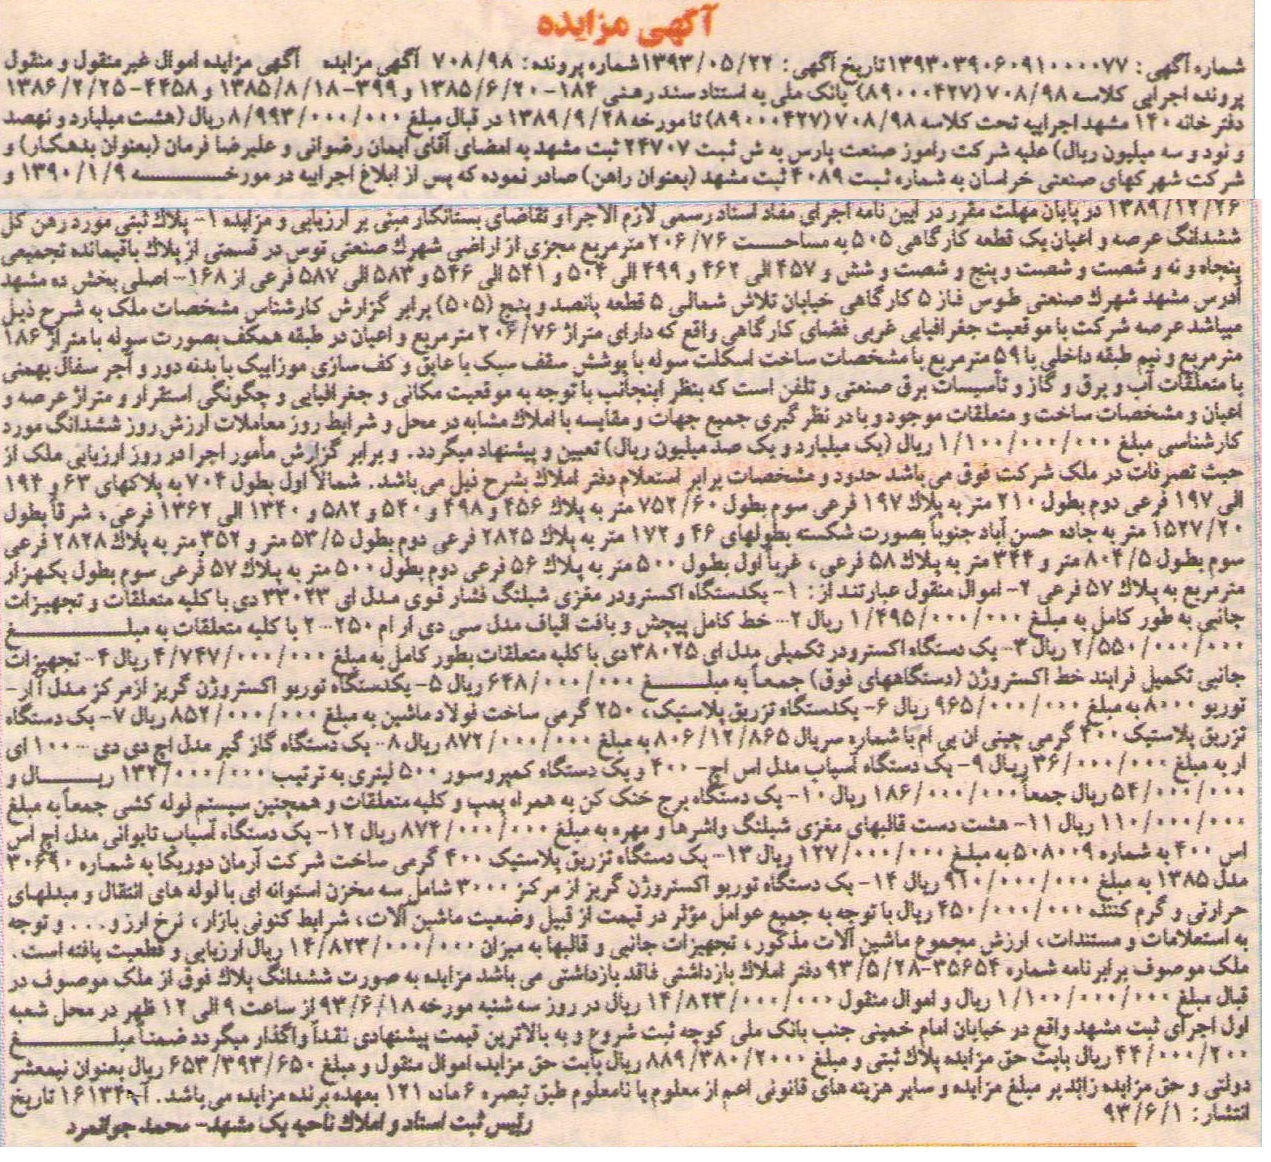 آگهی مزایده
شماره آگهی: ۱۳۹۳۰۳۹۰۶۰۹۱۰۰۰۰۷۷ تاریخ آگهی: ۱۳۹۳/۰۵/۲۲ شماره پرونده: ۷۰۸/۹۸ آگهی مزایده آگهی مزایده اموال غیرمنقول و منقول
پرونده اجرایی کلاسه ۷۰۸/۹۸ (۸۹۰۰۰۴۲۷) بانک ملی به استناد سند رهنی ۱۸۴- ۱۳۸۵/۶/۲۰ و ۳۹۹-۱۳۸۵/۸/۱۸ و ۴۴۵۸-۱۳۸۶/۲/۲۵
دفترخانه ۱۴۰ مشهد اجراییه تحت کلاسه ۷۰۸/۹۸ (۸۹۰۰۰۴۲۷) تا مورخه ۱۳۸۹/۹/۲۸ در قبال مبلغ ۸/۹۹۳/۰۰۰/۰۰۰ ریال (هشت میلیارد و نهصد
و نود و سه میلیون ریال) علیه شرکت راموز صنعت پارس به ش ثبت ۲۴۷۰۷ ثبت مشهد به امضای آقای ایمان رضوانی و علیرضا فرمان (بعنوان بدهکار) و
شرکت شهرکهای صنعتی خراسان به شماره ثبت ۴۰۸۹ ثبت مشهد (بعنوان راهن) صادر نموده که پس از ابلاغ اجراییه در مورخـــه ۱۳۹۰/۱/۹ و
۱۳۸۹/۱۲/۲۶ در پایان مهلت مقرر در آیین نامه اجرای مفاد اسناد رسمی لازم الاجرا و تقاضای بستانکار مبنی بر ارزیابی و مزایده ۱- پلاک ثبتی مورد رهن کل
ششدانگ عرصه و اعیان یک قطعه کارگاهی ۵۰۵ به مساحــت ۲۰۶/۷۶ مترمربع مجزی از اراضی شهرک صنعتی توس در قسمتی از پلاک باقیمانده تجمیعی
پنجاه و نه و شصت و شصت و پنج و شصت و شش و ۴۵۷ الی ۴۶۲ و ۴۹۹ الی ۵۰۴ و ۵۴۱ الی ۵۴۶ و ۵۸۳ الی ۵۸۷ فرعی از ۱۶۸- اصلی بخش ده مشهد
آدرس مشهد شهرک صنعتی طوس فاز ۵ کارگاهی خیابان تلاش شمالی ۵ قطعه پانصد و پنج (۵۰۵) برابر گزارش کارشناس مشخصات ملک به شرح ذیل
میباشد عرصه شرکت با موقعیت جغرافیایی غربی فضای کارگاهی واقع که دارای متراژ ۲۰۶/۷۶ مترمربع و اعیان در طبقه همکف بصورت سوله با متراژ ۱۸۶
مترمربع و نیم طبقه داخلی با ۵۹ مترمربع با مشخصات ساخت اسکلت سوله با پوشش سقف سبک با عایق و کف سازی موزاییک با بدنه دور و آجر سفال بهمنی
با متعلقات آب و برق و گاز و تأسیسات برق صنعتی و تلفن است که بنظر اینجانب با توجه به موقعیت مکانی و جغرافیایی و چگونگی استقرار و متراژ عرصه و
اعیان و مشخصات ساخت و متعلقات موجود و با در نظر گیری جمیع جهات و مقایسه با املاک مشابه در محل و شرایط روز معاملات ارزش روز ششدانگ مورد
کارشناسی مبلغ ۱/۱۰۰/۰۰۰/۰۰۰ ریال (یک میلیارد و یک صد میلیون ریال) تعیین و پیشنهاد میگردد. و برابر گزارش مأمور اجرا در روز ارزیابی ملک از
حیث تصرفات در ملک شرکت فوق می باشد حدود و مشخصات برابر استعلام دفتر املاک بشرح ذیل می باشد. شمالاً اول بطول ۷۰۴ به پلاکهای ۶۳ و ۱۹۴
الی ۱۹۷ فرعی دوم بطول ۲۱۰ متر به پلاک ۱۹۷ فرعی سوم بطول ۷۵۲/۶۰ متر به پلاک ۴۵۶ و ۴۹۸ و ۵۴۰ و ۵۸۲ و ۱۳۴۰ الی ۱۳۶۲ فرعی، شرقاً بطول
۱۵۲۷/۲۰ متر به جاده حسن آباد جنوباً بصورت شکسته بطولهای ۴۶ و ۱۷۲ متر به پلاک ۲۸۲۵ فرعی دوم بطول ۵۳/۵ متر و ۳۵۲ متر به پلاک ۲۸۲۸ فرعی
سوم بطول ۸۰۴/۵ متر و ۳۴۴ متر به پلاک ۵۸ فرعی، غرباً اول بطول ۵۰۰ متر به پلاک ۵۶ فرعی دوم بطول ۵۰۰ متر به پلاک ۵۷ فرعی سوم بطول یکهزار
مترمربع به پلاک ۵۷ فرعی ۲- اموال منقول عبارتند از: ۱- یکدستگاه اکسترودر مغزی شیلنگ فشار قوی مدل ای ۳۳۰۲۳ دی با کلیه متعلقات و تجهیزات
جانبی به طور کامل به مبلغ ۱/۴۹۵/۰۰۰/۰۰۰ ریال ۲-- خط کامل پیچش و بافت الیاف مدل سی دی ار ام ۲۵۰--۲ با کلیه متعلقات به مبلـــغ
۲/۵۵۰/۰۰۰/۰۰۰ ریال ۳-- یک دستگاه اکسترودر تکمیلی مدل ای ۳۸۰۲۵ دی با کلیه متعلقات بطور کامل به مبلغ ۴/۷۴۷/۰۰۰/۰۰۰ ریال ۴-- تجهیزات
جانبی تکمیل فرایند خط اکستروژن (دستگاههای فوق) جمعاً به مبلـــغ ۶۴۸/۰۰۰/۰۰۰ ریال ۵- یکدستگاه توربو اکستروژن گریز ازمرکز مدل آ ار-
توربو ۸۰۰۰ به مبلغ ۹۶۵/۰۰۰/۰۰۰ ریال ۶- یکدستگاه تزریق پلاستیک، ۲۵۰ گرمی ساخت فولاد ماشین به مبلغ ۸۵۲/۰۰۰/۰۰۰ ریال ۷- یک دستگاه
تزریق پلاستیک ۴۰۰ گرمی چینی ان بی ام با شماره سریال ۸۰۶/۱۲/۸۶۵ به مبلغ ۸۷۲/۰۰۰/۰۰۰ ریال ۸-- یک دستگاه گاز گیر مدل اچ دی دی -- ۱۰۰ ای
ار به مبلغ ۳۶/۰۰۰/۰۰۰ ریال ۹- یک دستگاه آسیاب مدل اس اچ- ۴۰۰ و یک دستگاه کمپروسور ۵۰۰ لیتری به ترتیب ۱۳۲/۰۰۰/۰۰۰ ریـــال و
۵۴/۰۰۰/۰۰۰ ریال جمعاً ۱۸۶/۰۰۰/۰۰۰ ریال ۱۰- یک دستگاه برج خنک کن به همراه پمپ و کلیه متعلقات و همچنین سیستم لوله کشی جمعاً به مبلغ
۱۱۰/۰۰۰/۰۰۰ ریال ۱۱- هشت دست قالبهای مغزی شیلنگ واشرها و مهره به مبلغ ۸۷۴/۰۰۰/۰۰۰ ریال ۱۲- یک دستگاه آسیاب تایوانی مدل اچ اس
اس ۴۰۰ به شماره ۵۰۸۰۰۹ به مبلغ ۱۲۷/۰۰۰/۰۰۰ ریال ۱۳- یک دستگاه تزریق پلاستیک ۴۰۰ گرمی ساخت شرکت آرمان دوریکا به شماره ۳۰۶۹۰
مدل ۱۳۸۵ به مبلغ ۹۱۰/۰۰۰/۰۰۰ ریال ۱۴- یک دستگاه توربو اکستروژن گریز از مرکز ۳۰۰۰ شامل سه مخزن استوانه ای با لوله های انتقال و مبدلهای
حرارتی و گرم کننده ۴۵۰/۰۰۰/۰۰۰ ریال با توجه به جمیع عوامل مؤثر در قیمت از قبیل وضعیت ماشین آلات، شرایط کنونی بازار، نرخ ارز و... و توجه
به استعلامات و مستندات، ارزش مجموع ماشین آلات مذکور، تجهیزات جانبی و قالبها به میزان ۱۴/۸۲۳/۰۰۰/۰۰۰ ریال ارزیابی و قطعیت یافته است.
ملک موصوف برابر نامه شماره ۳۵۶۵۴-۹۳/۵/۲۸ دفتر املاک بازداشتی فاقد بازداشتی می باشد مزایده به صورت ششدانگ پلاک فوق از ملک موصوف در
قبال مبلغ ۱/۱۰۰/۰۰۰/۰۰۰ ریال و اموال منقول ۱۴/۸۲۳/۰۰۰/۰۰۰ ریال در روز سه شنبه مورخه ۹۳/۶/۱۸ از ساعت ۹ الی ۱۲ ظهر در محل شعبه
اول اجرای ثبت مشهد واقع در خیابان امام خمینی جنب بانک ملی کوچه ثبت شروع و به بالاترین قیمت پیشنهادی نقداً واگذار میگردد ضمناً مبلــــغ
۴۴/۰۰۰/۲۰۰ ریال بابت حق مزایده پلاک ثبتی و مبلغ ۸۸۹/۳۸۰/۲۰۰۰ ریال بابت حق مزایده اموال منقول و مبلغ ۶۵۳/۳۹۳/۶۵۰ ریال بعنوان نیمعشر
دولتی و حق مزایده زائد بر مبلغ مزایده و سایر هزینه های قانونی اعم از معلوم یا نامعلوم طبق تبصره ۶ ماده ۱۲۱ بعهده برنده مزایده می باشد. آ-۱۶۱۳۴ تاریخ
انتشار: ۹۳/۶/۱
رئیس ثبت اسناد و املاک ناحیه یک مشهد- محمد جوانمرد